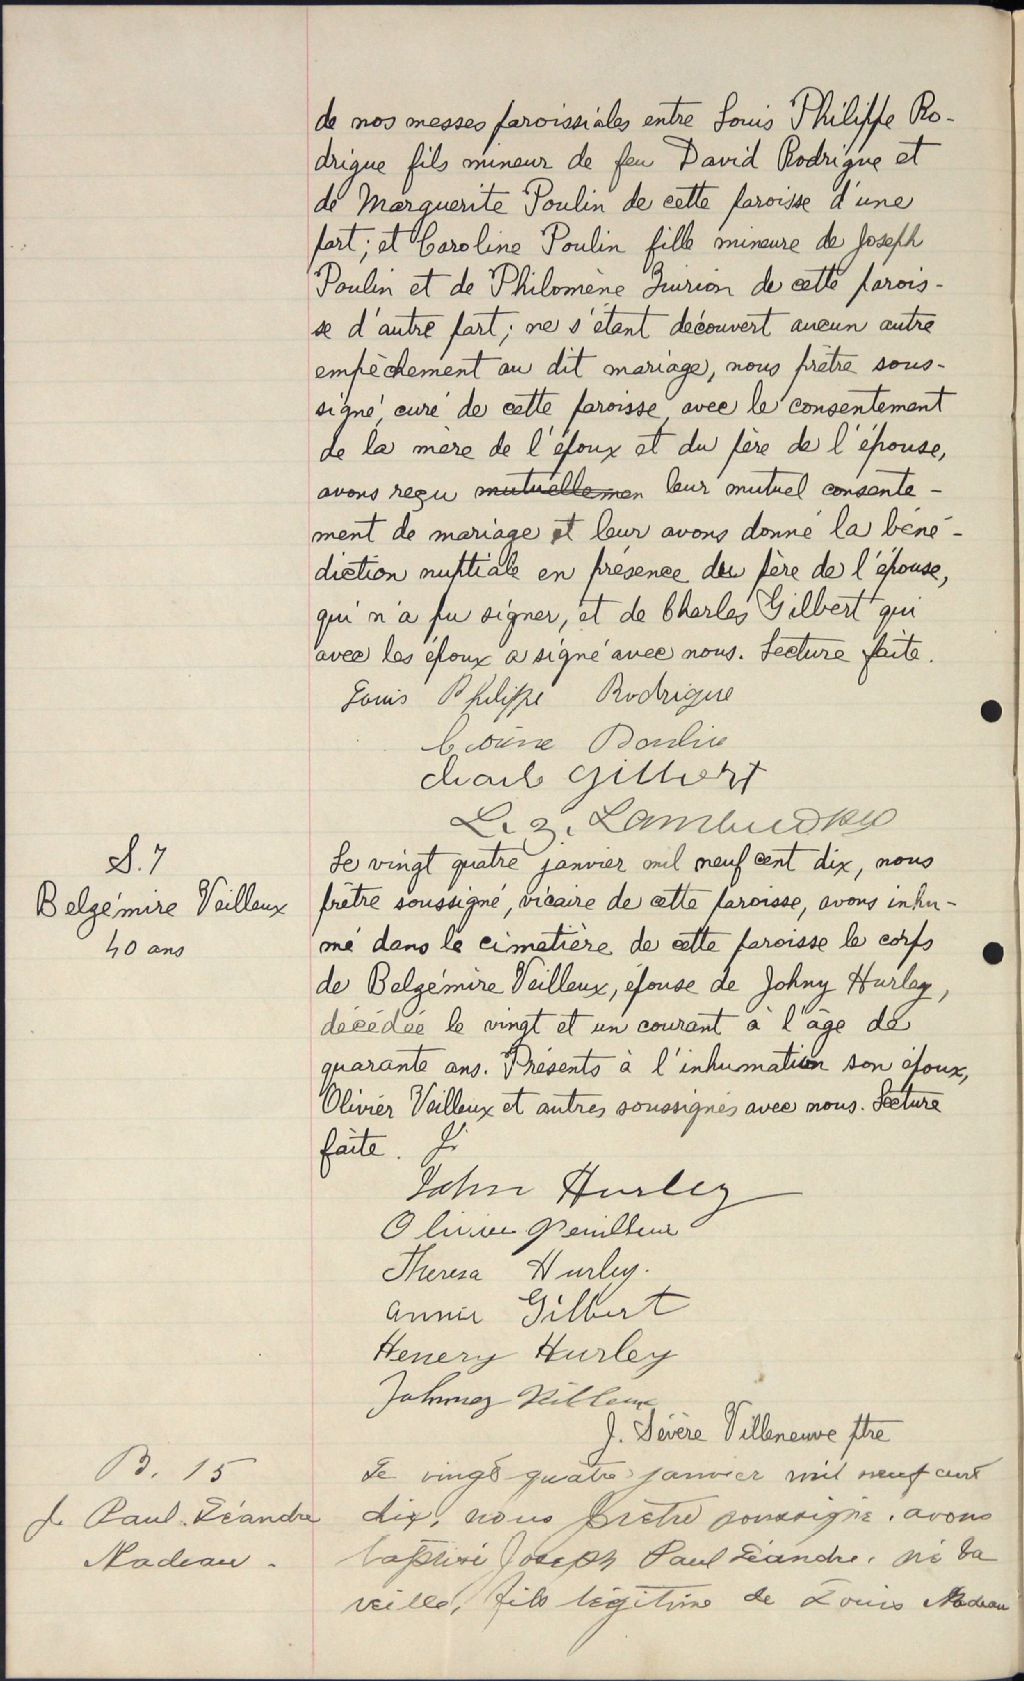 de nos messes paroissiales entre Louis Philippe Ro-
drigue fils mineur de feu David Rodrigue et
de Marguerite Poulin de cette paroisse d'une
part; et Caroline Poulin fille mineure de Joseph
Poulin et de Philomène Quirion de cette parois-
se d'autre part; ne s'étant découvert aucun autre
empêchement au dit mariage, nous prêtre sous-
signé, curé de cette paroisse, avec le consentement
de la mère de l'époux et du père de l'épouse,
avons reçu mutuellemen leur mutuel consente-
ment de mariage et leur avons donné la béné-
diction nuptiale en présence du père de l'épouse,
qui n'a pu signer, et de Charles Gilbert qui
avec les époux a signé avec nous. Lecture faite.
Louis Philippe Rodrigue
Poulin
Gilbert
L. Z. Lambert
S. 7
Belzémire Veilleux
40 ans
Le vingt quatre janvier mil neuf cent dix, nous
prêtre soussigné, vicaire de cette paroisse, avons inhu-
mé dans le cimetière de cette paroisse le corps
de Belzémire Veilleux, épouse de Johny Hurley,
décédée le vingt et un courant à l'âge de
quarante ans. Présents à l'inhumation son époux,
Olivier Veilleux et autres soussignés avec nous. Lecture
faite. J.
John Hurley
Olivier Veuilleux
Theresa Hurley.
Annie Gilbert
Henery Hurley
J. Sévère Villeneuve ptre
B. 15
J. Paul-Léandre
Nadeau.
Le vingt quatre janvier mil neuf cent
dix, nous prêtre soussigné, avons
baptisé Joseph Paul Léandre, né la
veille, fils légitime de Louis Nadeau